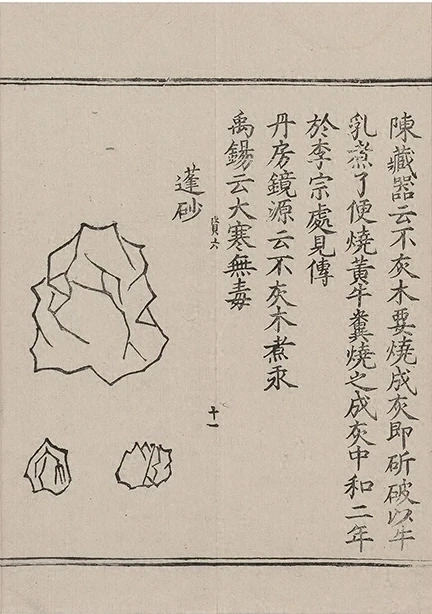 陳藏器云不灰木要燒成灰即斫破以牛
乳煮了便燒黃牛糞燒之成灰中和二年
於李宗處見傳
丹房鏡源云不灰木煮汞
禹錫云大寒無毒
十一
蓬砂